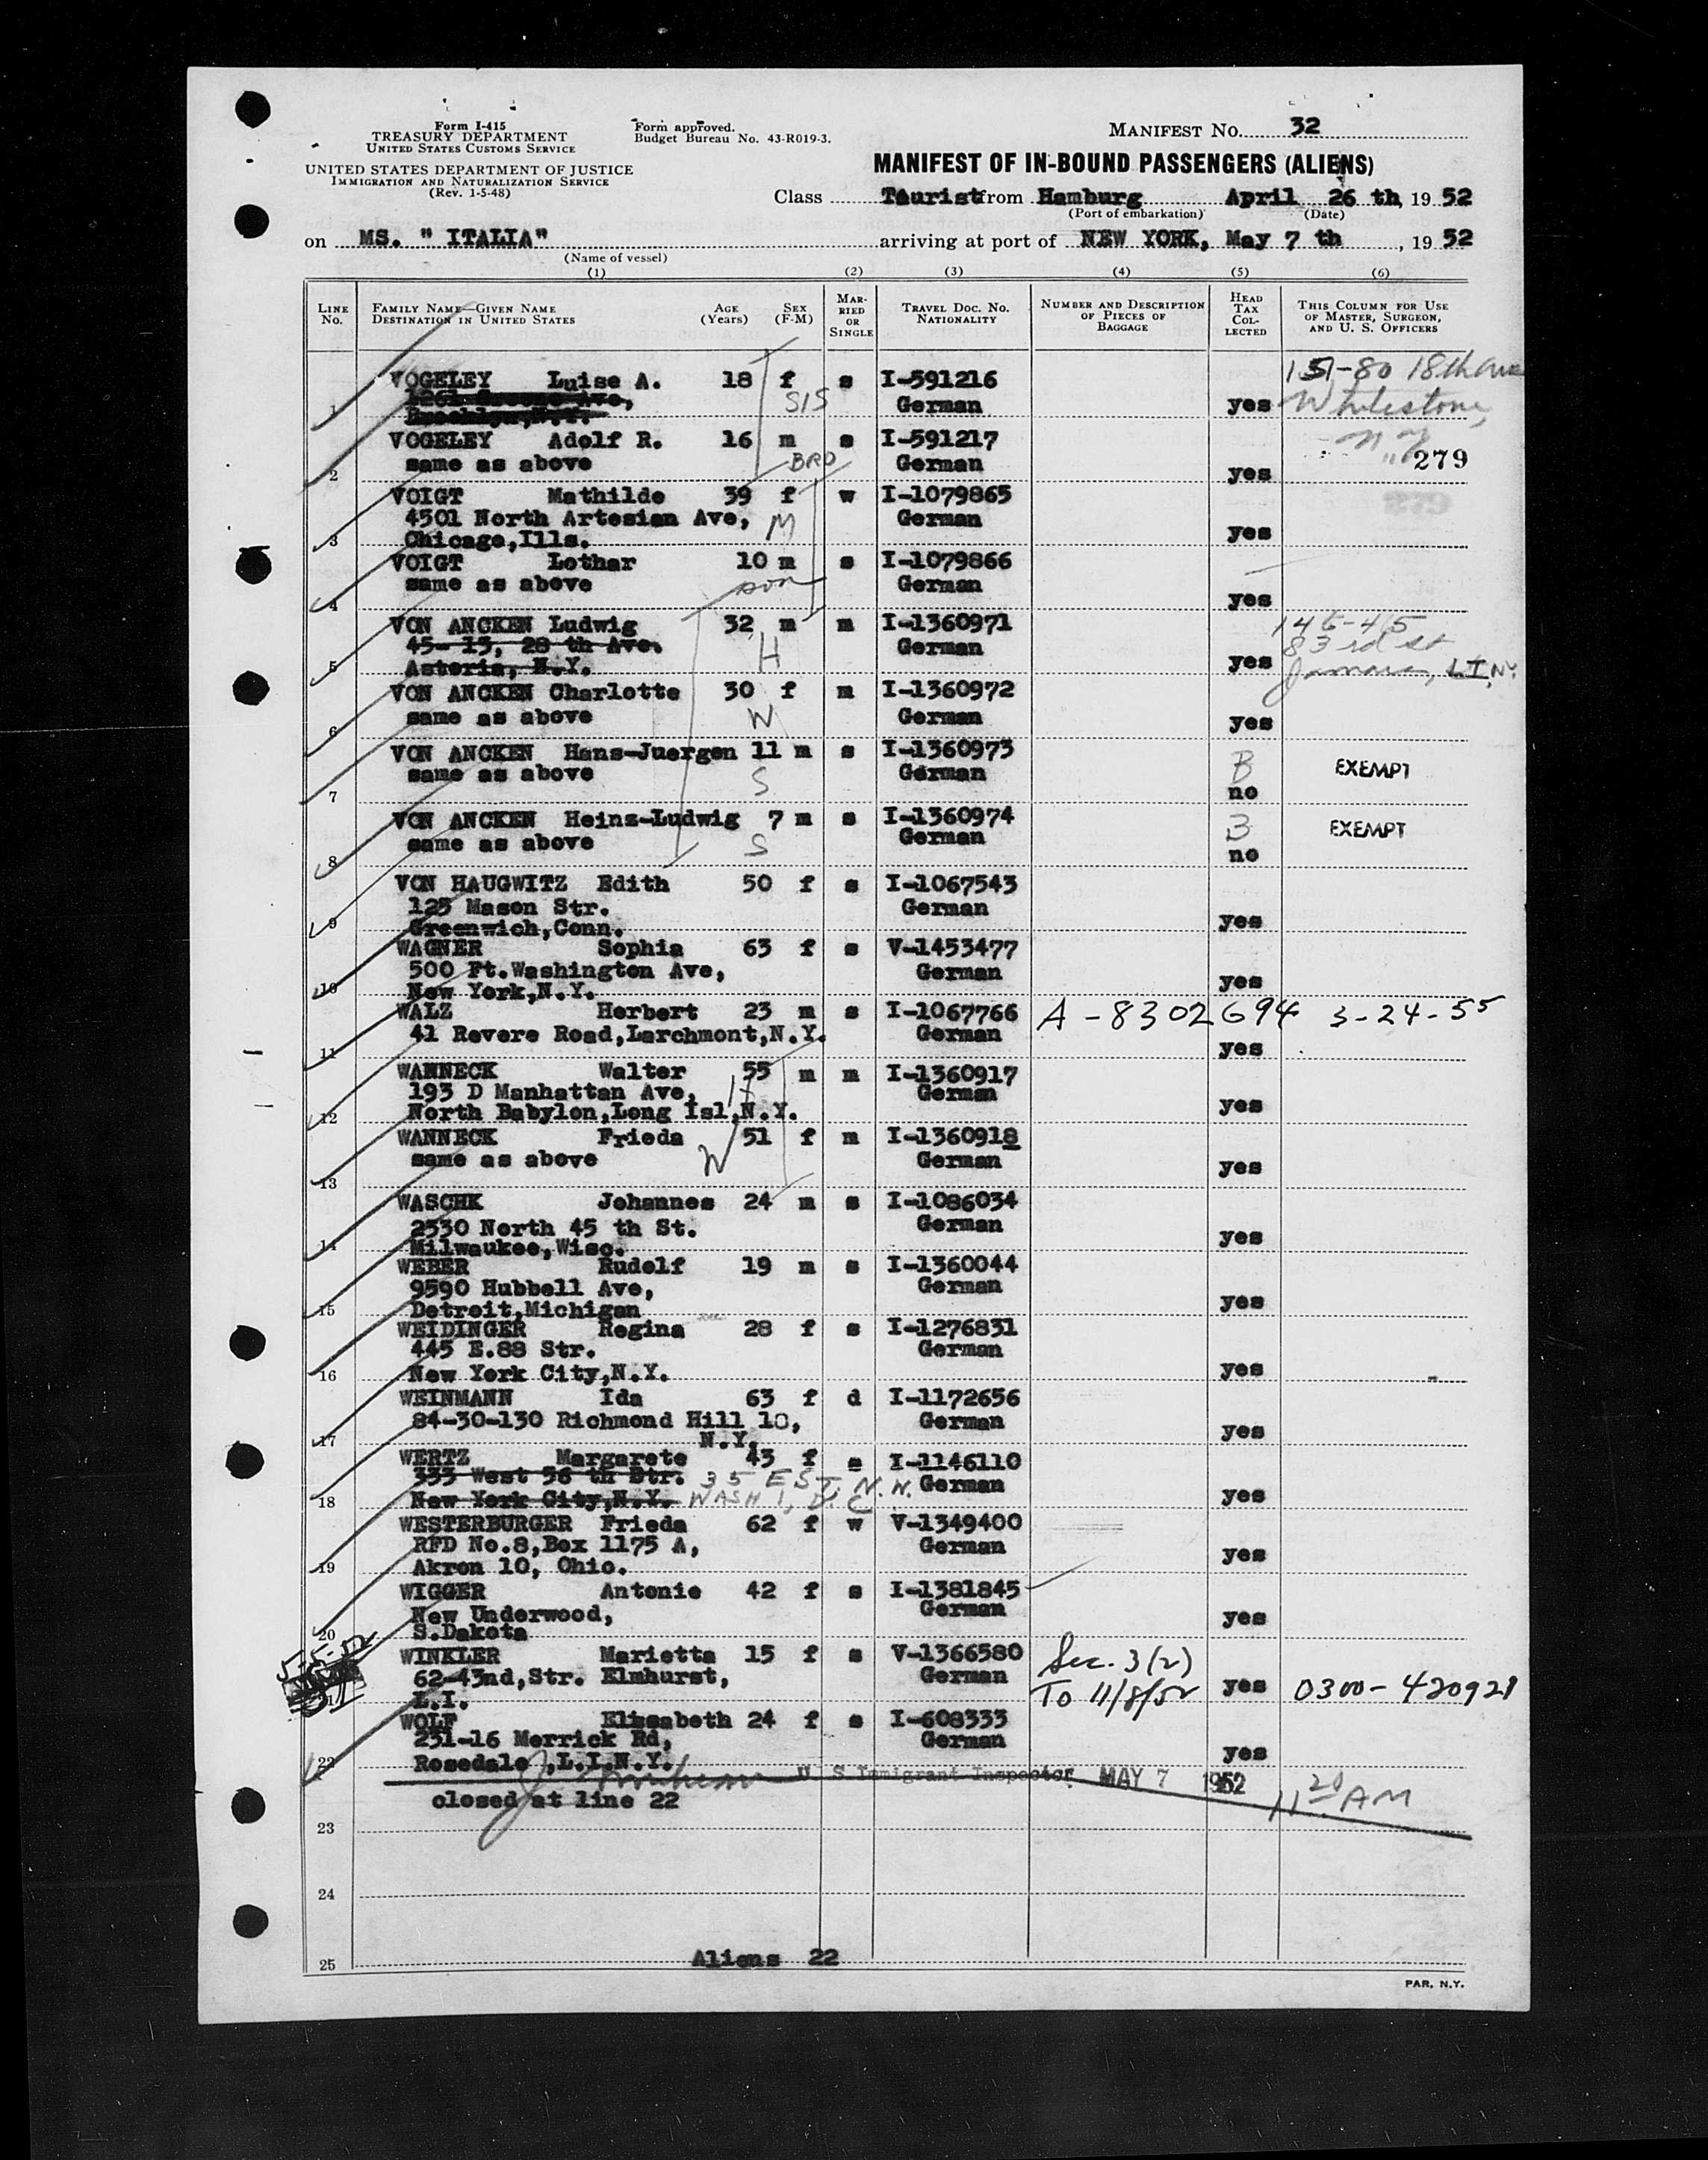 Form I-415
TREASURY DEPARTMENT
UNITED STATES CUSTOMS SERVICE
UNITED STATES DEPARTMENT OF JUSTICE
IMMIGRATION AND NATURALIZATION SERVICE
(Rev. 1-5-48)
Form approved.
Budget Bureau No. 43-R019-3.
MANIFEST No. 32
MANIFEST OF IN-BOUND PASSENGERS (ALIENS)
Class Tourist from Hamburg April 26 th, 19 52
(Port of embarkation) (Date)
on MS. " ITALIA" arriving at port of NEW YORK, May 7 th , 19 52
(Name of vessel)
(1) (2) (3) (4) (5) (6)
LINE No. FAMILY NAME—GIVEN NAME DESTINATION IN UNITED STATES AGE (Years) SEX (F-M) MARRIED OR SINGLE TRAVEL DOC. No. NATIONALITY NUMBER AND DESCRIPTION OF PIECES OF BAGGAGE HEAD TAX COLLECTED THIS COLUMN FOR USE OF MASTER, SURGEON, AND U. S. OFFICERS
VOGELEY Luise A. 18 f s I-591216 151-80 18th Ave
SIS German yes Whitestone,
1 N.Y.
VOGELEY Adolf R. 16 m s I-591217
same as above BRO German 279
2 yes
VOIGT Mathilde 39 f w I-1079865
4501 North Artesian Ave, M German
3 Chicago,Ills. yes
VOIGT Lothar 10 m s I-1079866
same as above son German
4 yes
VON ANCKEN Ludwig 32 m m I-1360971 145-45
45-13, 28 th Ave. H German 83rd St
5 Astoria, N.Y. yes Jamaica, L.I.N.Y.
VON ANCKEN Charlotte 30 f m I-1360972
same as above W German
6 yes
VON ANCKEN Hans-Juergen 11 m s I-1360973
same as above S German B EXEMPT
7 no
VON ANCKEN Heinz-Ludwig 7 m s I-1360974
same as above S German B EXEMPT
8 no
VON HAUGWITZ Edith 50 f s I-1067543
125 Mason Str. German
9 Greenwich,Conn. yes
WAGNER Sophia 63 f s V-1453477
500 Ft.Washington Ave, German
10 New York,N.Y. yes
WALZ Herbert 23 m s I-1067766 A-8302694 3-24-55
41 Revere Road,Larchmont,N.Y. German
11 yes
WANNECK Walter 55 m m I-1360917
193 D Manhattan Ave, H German
12 North Babylon,Long Isl,N.Y. yes
WANNECK Frieda 51 f m I-1360918
same as above W German
13 yes
WASCHK Johannes 24 m s I-1086034
2530 North 45 th St. German
14 Milwaukee,Wisc. yes
WEBER Rudolf 19 m s I-1360044
9590 Hubbell Ave, German
15 Detroit,Michigan yes
WEIDINGER Regina 28 f s I-1276831
445 E.88 Str. German
16 New York City,N.Y. yes
WEINMANN Ida 63 f d I-1172656
84-30-130 Richmond Hill 18, German
17 N.Y. yes
WERTZ Margarete 43 f s I-1146110
333 West 56 th Str. 35 E ST. N.W. German
18 New York City,N.Y. WASH 1, D.C. yes
WESTERBURGER Frieda 62 f w V-1349400
RFD No.8,Box 1175 A, German
19 Akron 10, Ohio. yes
WIGGER Antonie 42 f s I-1381845
New Underwood, German
20 S.Dakota yes
WINKLER Marietta 15 f s V-1366580 Sec. 3(2)
62-43nd,Str. Elmhurst, German To 11/8/52 yes 0300-420921
L.I.
WOLF Elisabeth 24 f s I-608333
231-16 Merrick Rd, German
22 Rosedale,L.I.N.Y. yes
U S Immigrant Inspector MAY 7 1952 11 20 AM
closed at line 22
23
24
Aliens 22
25
PAR, N.Y.